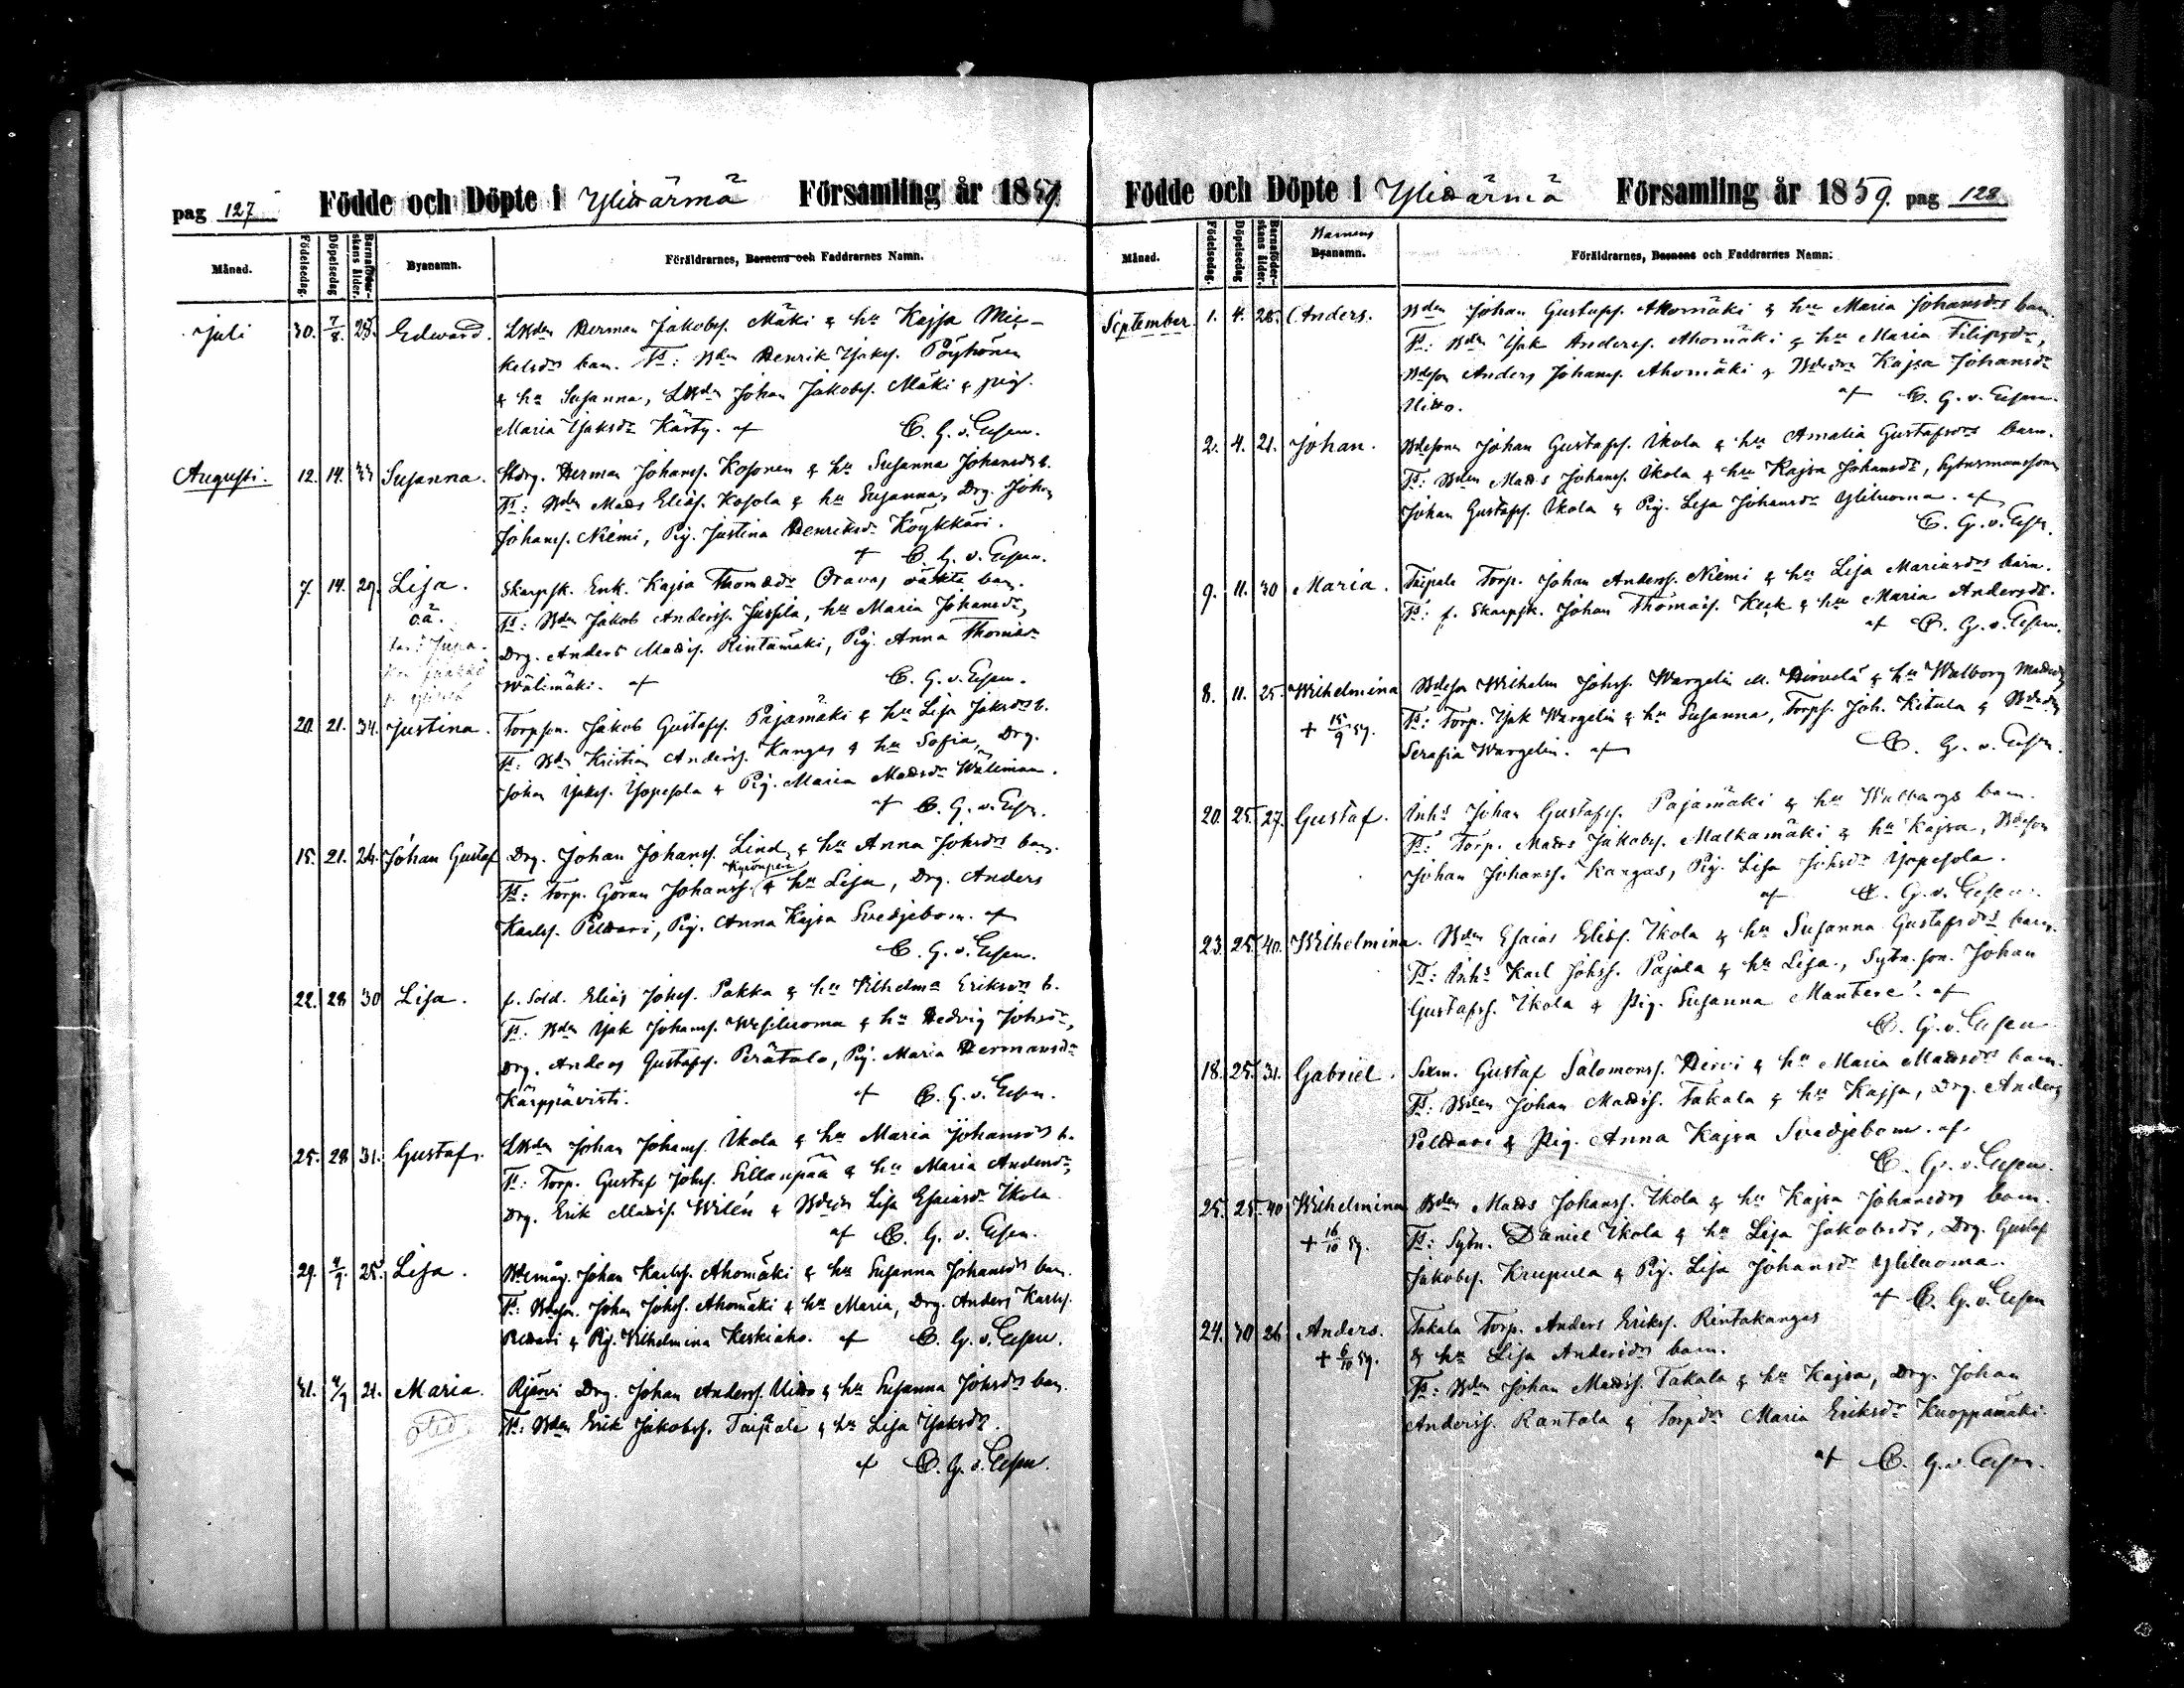 pag 127 Födde och Döpte i Ylihärmä Församling år 1859
Månad. Födelsedag. Döpelsedag Barnaföderskans ålder. Byanamn. Föräldrarnes, Barnens och Faddrarnes Namn.
Juli 30. 7/8. 28. Edward. Bden Herman Jakobss. Mäki & hu Kajsa Mic-
kelsdr barn. Ft: Bden Henrik Isaks. Pöyhönen
& hu Susanna, Bden Johan Jakobss. Mäki & pig.
Maria Isaksdr Kärty. af C. G. v. Essen.
Augusti. 12. 14. 33 Susanna. Herman Johanss. Kosonen & hu Susanna Johansdr b.
Ft: Bden Matts Eliass. Kosola & hu Susanna, Drg. Johan
Johanss. Niemi, Pig. Justina Henriksdr Köykkäri.
af C. G. v. Essen.
7. 14. 29. Lisa. Skarpsk. Enk. Kajsa Thomasdr Oravas oäkta barn.
o.ä. Ft: Bden Jakob Anderss. Jussila, hu Maria Johansdr,
Drg. Anders Matss. Rintamäki, Pig. Anna Thomasdr
Wälimäki. af C. G. v. Essen.
20. 21. 34. Justina. Torpson. Jakob Gustafss. Pajamäki & hu Lisa Jaksdr b.
Ft: Bden Kristian Anderss. Kangas & hu Sofia, Drg.
Johan Isakss. Yopesola & Pig. Maria Matsdr Wälimaa.
af C. G. v. Essen.
15. 21. 24. Johan Gustaf Drg. Johan Johanss. Lind & hu Anna Johsdr barn.
Ft: Torp. Göran Johanss. & hu Lisa, Drg. Anders
Karlss. Peltari, Pig. Anna Kajsa Svedjebom. af
C. G. v. Essen.
22. 28 30 Lisa. f. Sold. Elias Johss. Pakka & hu Vilhelma Eriksdr b.
Ft: Bden Isak Johanss. Wesiluoma & hu Hedvig Johsdr,
Drg. Anders Gustafss. Perätalo, Pig. Maria Hermansdr
Kärppävisti. af C. G. v. Essen.
25. 28 31. Gustaf. Bden Johan Johanss. Ikola & hu Maria Johansdr b.
Ft: Torp. Gustaf Johss. Sillanpää & hu Maria Andersdr,
Drg. Erik Matss. Wilén & Bdedr Lisa Esaiasdr Ikola
af C. G. v. Essen.
29. 4/9. 25. Lisa. Bdemåg. Johan Karlss. Ahomäki & hu Susanna Johansdr barn.
Ft: Bdeson. Johan Johss. Ahomäki & hu Maria, Drg. Anders Karlss.
Peltari & Pig. Vilhelmina Keskiaho. af C. G. v. Essen.
31. 4/9 21. Maria. Drg. Johan Anderss. Uitto & hu Susanna Johsdr barn.
Ft: Bden Erik Jakobss. Taipale & hu Lisa Isaksdr.
af C. G. v. Essen.
Födde och Döpte i Ylihärmä Församling år 1859. pag 128
Månad. Födelsedag. Döpelsedag Barnaföderskans ålder. Barnens Byanamn. Föräldrarnes, Barnens och Faddrarnes Namn:
September. 1. 4. 28. Anders. Bden Johan Gustafss. Ahomäki & hu Maria Johansdr barn.
Ft: Bden Isak Anderss. Ahomäki & hu Maria Filipsdr,
Bdeson Anders Johanss. Ahomäki & Bdedr Kajsa Johansdr
Uitto. af C. G. v. Essen.
2. 4. 21. Johan. Bdesonen Johan Gustafss. Ikola & hu Amalia Gustafsdr barn.
Ft: Bden Matts Johanss. Ikola & hu Kajsa Johansdr, Sytnsmanssonen
Johan Gustafss. Ikola & Pig. Lisa Johansdr Yliluoma. af
C. G. v. Essen.
9. 11. 30 Maria. Taipale Torp. Johan Anderss. Niemi & hu Lisa Mariasdr barn.
Ft: f. Skarpsk. Johan Thomass. Keck & hu Maria Andersdr.
af C. G. v. Essen.
8. 11. 25. Wilhelmina Bdeson Wilhelm Johss. Wargelin & hu Walborg Matsdr
+ 15/9 59. Ft: Torp. Isak Wargelin & hu Susanna, Torps. Joh. Kitula & Bdedr
Serafia Wargelin. af C. G. v. Essen.
20. 25. 27. Gustaf. Inhs Johan Gustafss. Pajamäki & hu Walborgs barn.
Ft: Torp. Matts Jakobss. Malkamäki & hu Kajsa, Bdeson
Johan Johanss. Kangas, Pig. Lisa Johsdr Yopesola.
af C. G. v. Essen.
23. 25. 40. Wilhelmina. Bden Esaias Eliass. Ikola & hu Susanna Gustafsdr barn.
Ft: Inhs Karl Johss. Pajala & hu Lisa, Sytn. son. Johan
Gustafss. Ikola & Pig. Susanna Mantere. af
C. G. v. Essen
18. 25. 31. Gabriel. Sexm. Gustaf Salomonss. Hirvi & hu Maria Matsdr barn.
Ft: Bden Johan Matss. Takala & hu Kajsa, Drg. Anders
Peltari & Pig. Anna Kajsa Svedjebom. af
C. G. v. Essen.
25. 25. 40 Wilhelmina Bden Matts Johanss. Ikola & hu Kajsa Johansdr barn.
+ 16/10 59. Ft: Sytn. Daniel Ikola & hu Lisa Jakobsdr, Drg. Gustaf
Jakobss. Krupula & Pig. Lisa Johansdr Yliluoma.
af C. G. v. Essen
24. 30 26 Anders. Takala Torp. Anders Erikss. Rintakangas
+ 6/10 59. & hu Lisa Andersdr barn.
Ft: Bden Johan Matss. Takala & hu Kajsa, Drg. Johan
Anderss. Rantala & Torpdr Maria Eriksdr Kuoppamäki.
af C. G. v. Essen.